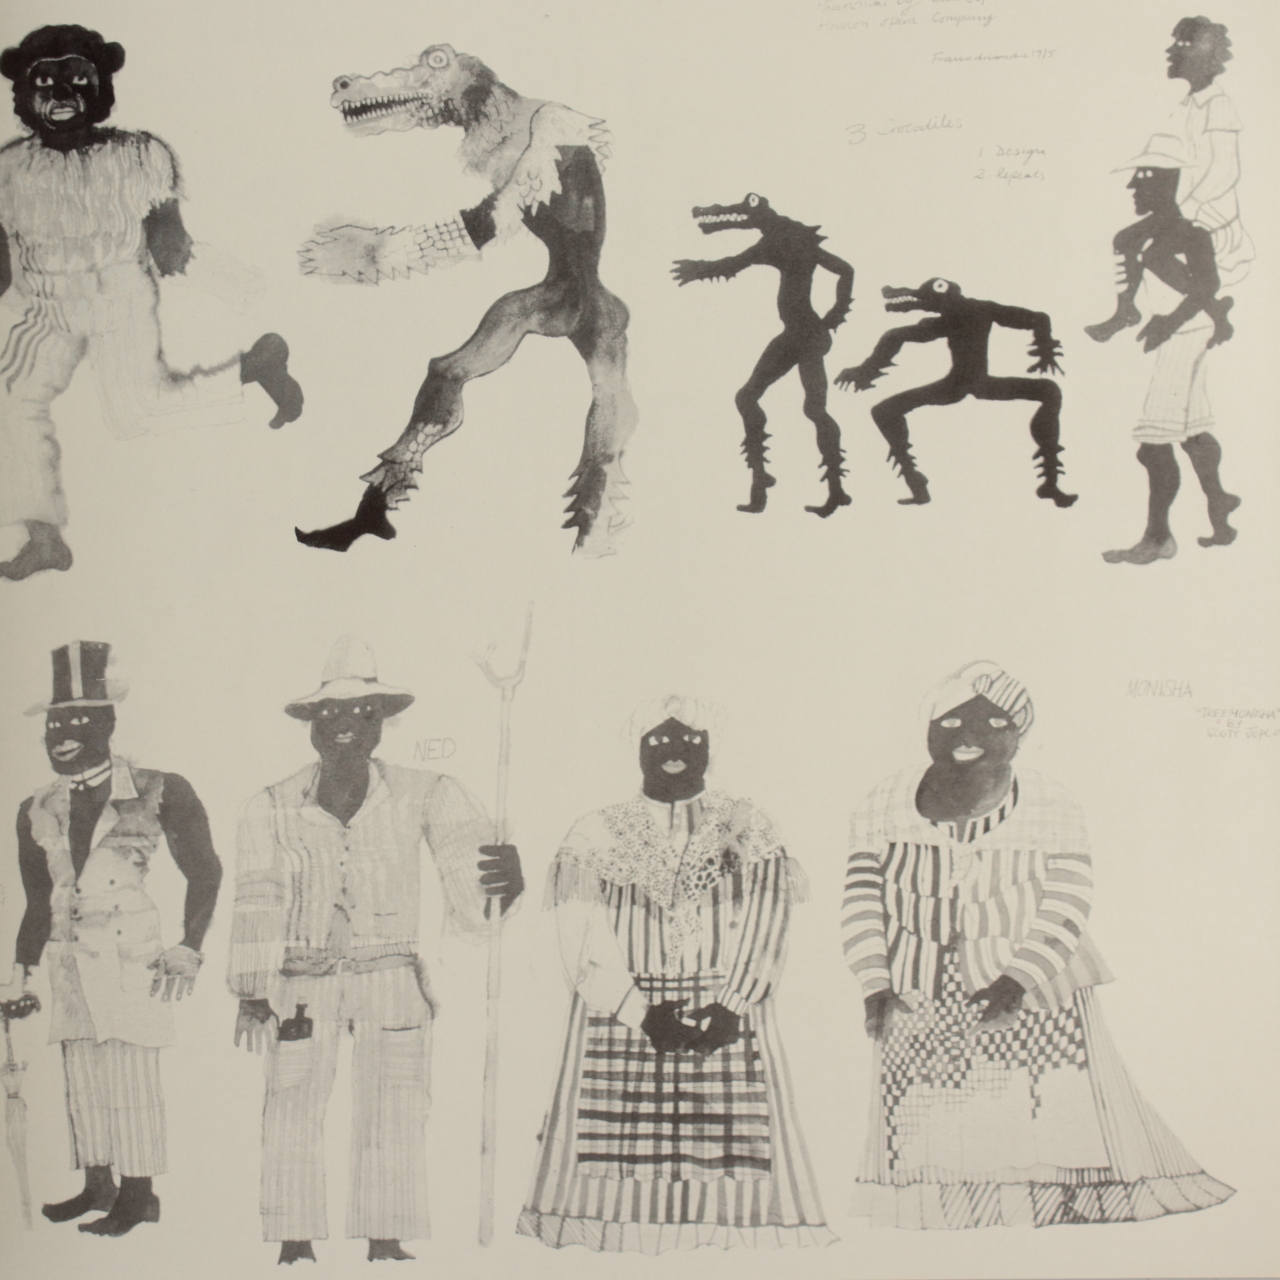 Houston Opera Company
3 Crocodiles
1 Design
2 Repeats
NED
MONISHA
"TREEMONISHA"
BY
SCOTT JOPLI